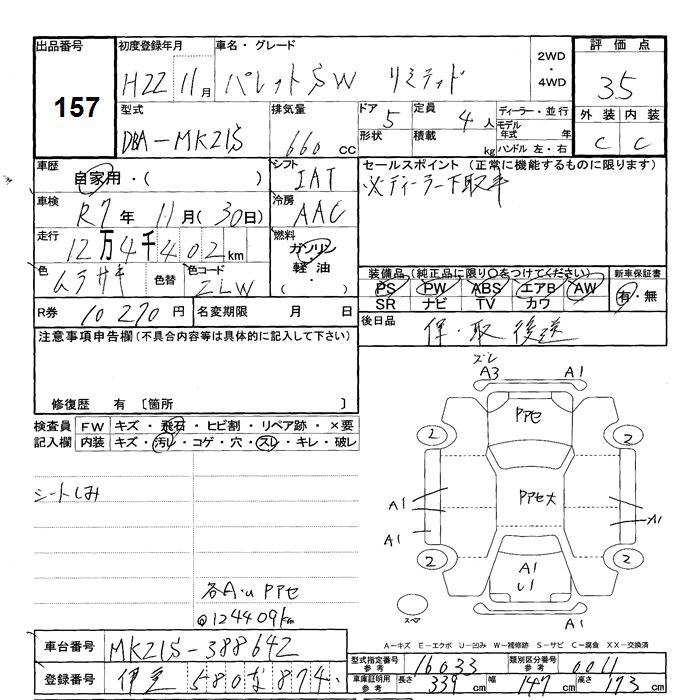 出品番号 初度登録年月 車名・グレード 2WD・4WD 評価点
157 H22 11月 パレットSW リミテッド 3.5
型式 排気量 ドア 5 定員 4人 ディーラー・並行 外装 内装
DBA-MK21S 660 CC 形状 積載 kg モデル年式 年 ハンドル 左・右 C C
車歴 自家用・( ) シフト IAT セールスポイント (正常に機能するものに限ります)
※ディーラー下取車
車検 R7年 11月(30日) 冷房 AAC
走行 12万4千402km 燃料 ガソリン・軽油・( )
色 ムラサキ 色替 色コード ZLW
装備品(純正品に限り○をつけてください) 新車保証書
PS PW ABS エアB AW 有・無
SR ナビ TV カワ
R券 10270円 名変期限 月 日
後日品 保・取 後送
注意事項申告欄(不具合内容等は具体的に記入して下さい)
修復歴 有 〔箇所 〕
検査員記入欄 FW キズ・飛石・ヒビ割・リペア跡・×要
内装 キズ・汚レ・コゲ・穴・スレ・キレ・破レ
シートしみ
各A・U PPセ
@124409km
ズレ
A3 A1
PPセ
2 2
PPセ大
A1 A1
A1
2 2
A1
U1
スペア A1
A-キズ E-エクボ U-凹み W-補修跡 S-サビ C-腐食 XX-交換済
車台番号 MK21S-388642
登録番号 580 874
型式指定番号 参考 16033 類別区分番号 参考 0011
車庫証明用 参考 長さ 339cm 幅 147cm 高さ 173cm